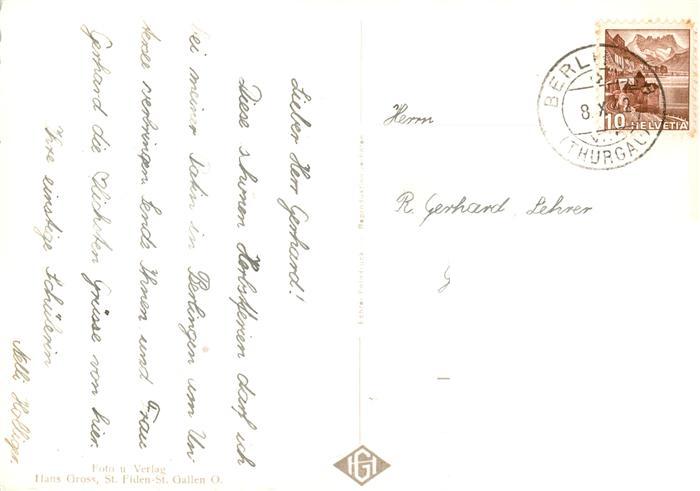 Lieber Herr Gerhard!
Diese schönen Herbstferien darf ich
bei meiner in Berlingen am Un
tersee verbringen. Sende Ihnen und Frau
Gerhard die herzlichsten Grüsse von hier.
Ihre einstige Schülerin
Nelli
Foto u Verlag
Hans Gross, St. Fiden-St. Gallen O.
HG
BERLI
8.X
(THURGAU)
10 HELVETIA
Herrn
R. Gerhard, Lehrer